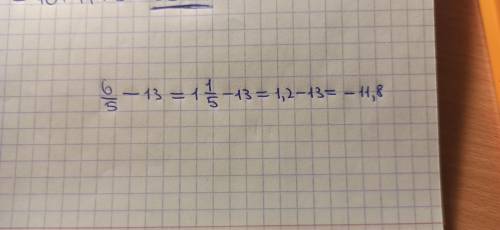 6/5 - 13 = 1 1/5 - 13 = 1,2 - 13 = - 11,8